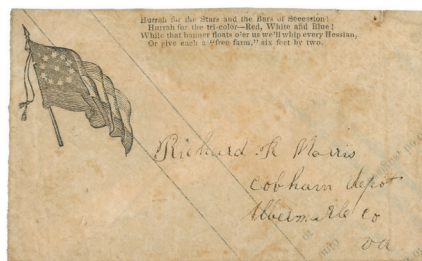 Hurrah for the Stars and the Bars of Secession!
Hurrah for the tri-color—Red, White and Blue!
While that banner floats o'er us we'll whip every Hessian,
Or give each a "free farm," six feet by two.
Richard K Morris
Cobham depot
Albemarle Co
Va